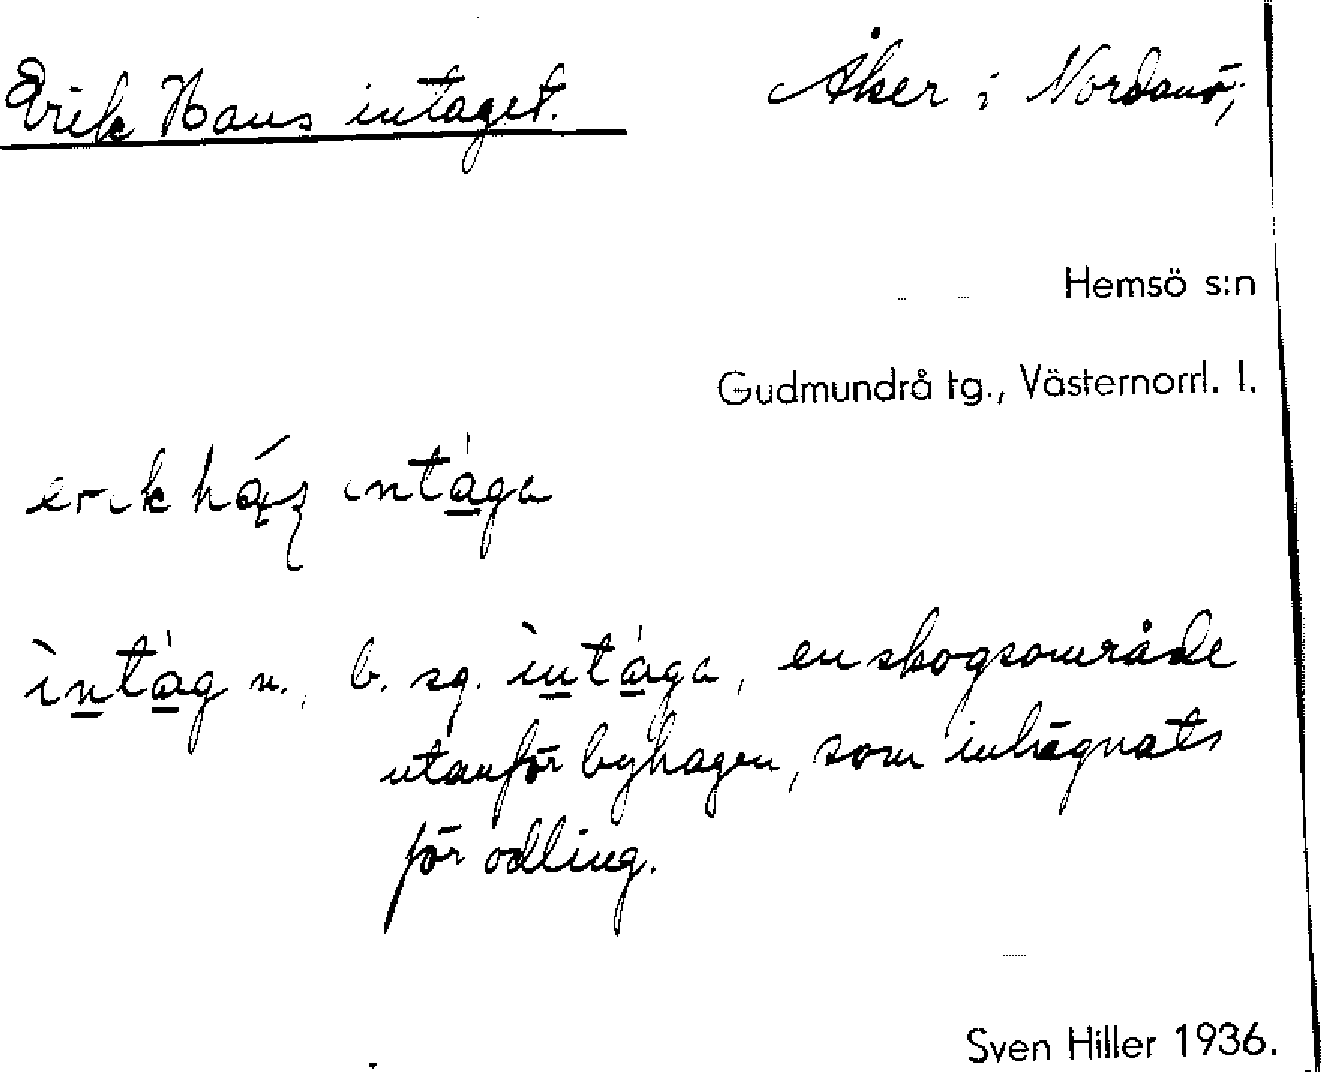 Erik Hans intaget. Åker i Nordanö,
Hemsö s:n
Gudmundrå tg., Västernorrl. l.
erik intága
ìntág n., b. sg. ìntága, en skogsområde
utanför byhagen, som inhägnats
för odling.
Sven Hiller 1936.